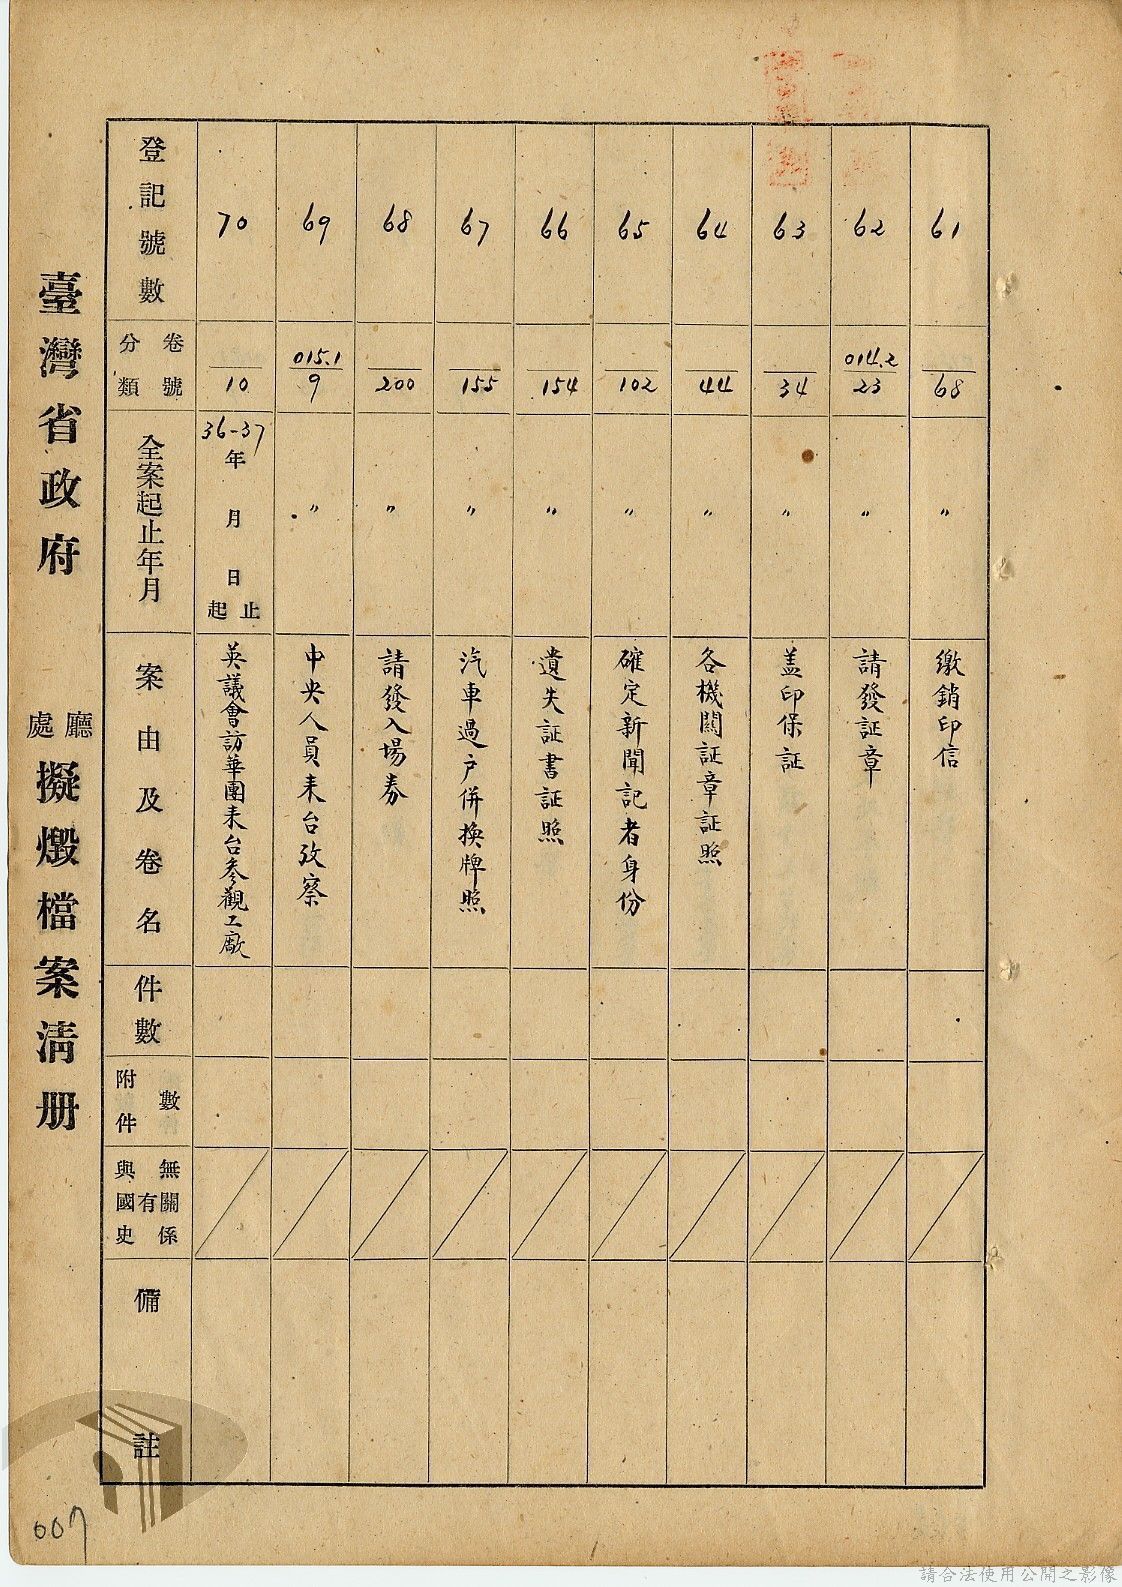 臺灣省政府 廳處擬燬檔案清册
登記號數
分類 卷號
全案起止年月
案由及卷名
件數
附件數
與國史有無關係
備註
61
68
〃
繳銷印信
62
014.2
23
〃
請發証章
63
34
〃
盖印保証
64
44
〃
各機關証章証照
65
102
〃
確定新聞記者身份
66
154
〃
遺失証書証照
67
155
〃
汽車過户併換牌照
68
200
〃
請發入場券
69
015.1
9
〃
中央人員来台攷察
70
10
36-37
年 月 日
起 止
英議會訪華團来台参觀工廠
007
請合法使用公開之影像